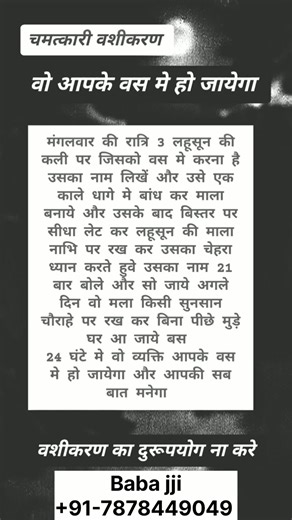 चमत्कारी वशीकरण
वो आपके वस मे हो जायेगा
मंगलवार की रात्रि 3 लहूसून की
कली पर जिसको वस मे करना है
उसका नाम लिखें और उसे एक
काले धागे मे बांध कर माला
बनाये और उसके बाद बिस्तर पर
सीधा लेट कर लहसून की माला
नाभि पर रख कर उसका चेहरा
ध्यान करते हुवे उसका नाम 21
बार बोले और सो जाये अगले
दिन वो मला किसी सुनसान
चौराहे पर रख कर बिना पीछे मुड़े
घर आ जाये बस
24 घंटे मे वो व्यक्ति आपके वस
मे हो जायेगा और आपकी सब
बात मनेगा
वशीकरण का दुरूपयोग ना करे
Baba jji
+91-7878449049